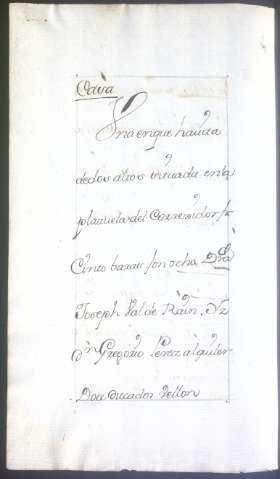 Cassa
Una en que havita
de dos altos situada en la
plazuela del Corremidor
Cinco baras fon ocho
Joseph Val de Rain,
dn Gregorio Perez alquiler
Doce ducados Vellon